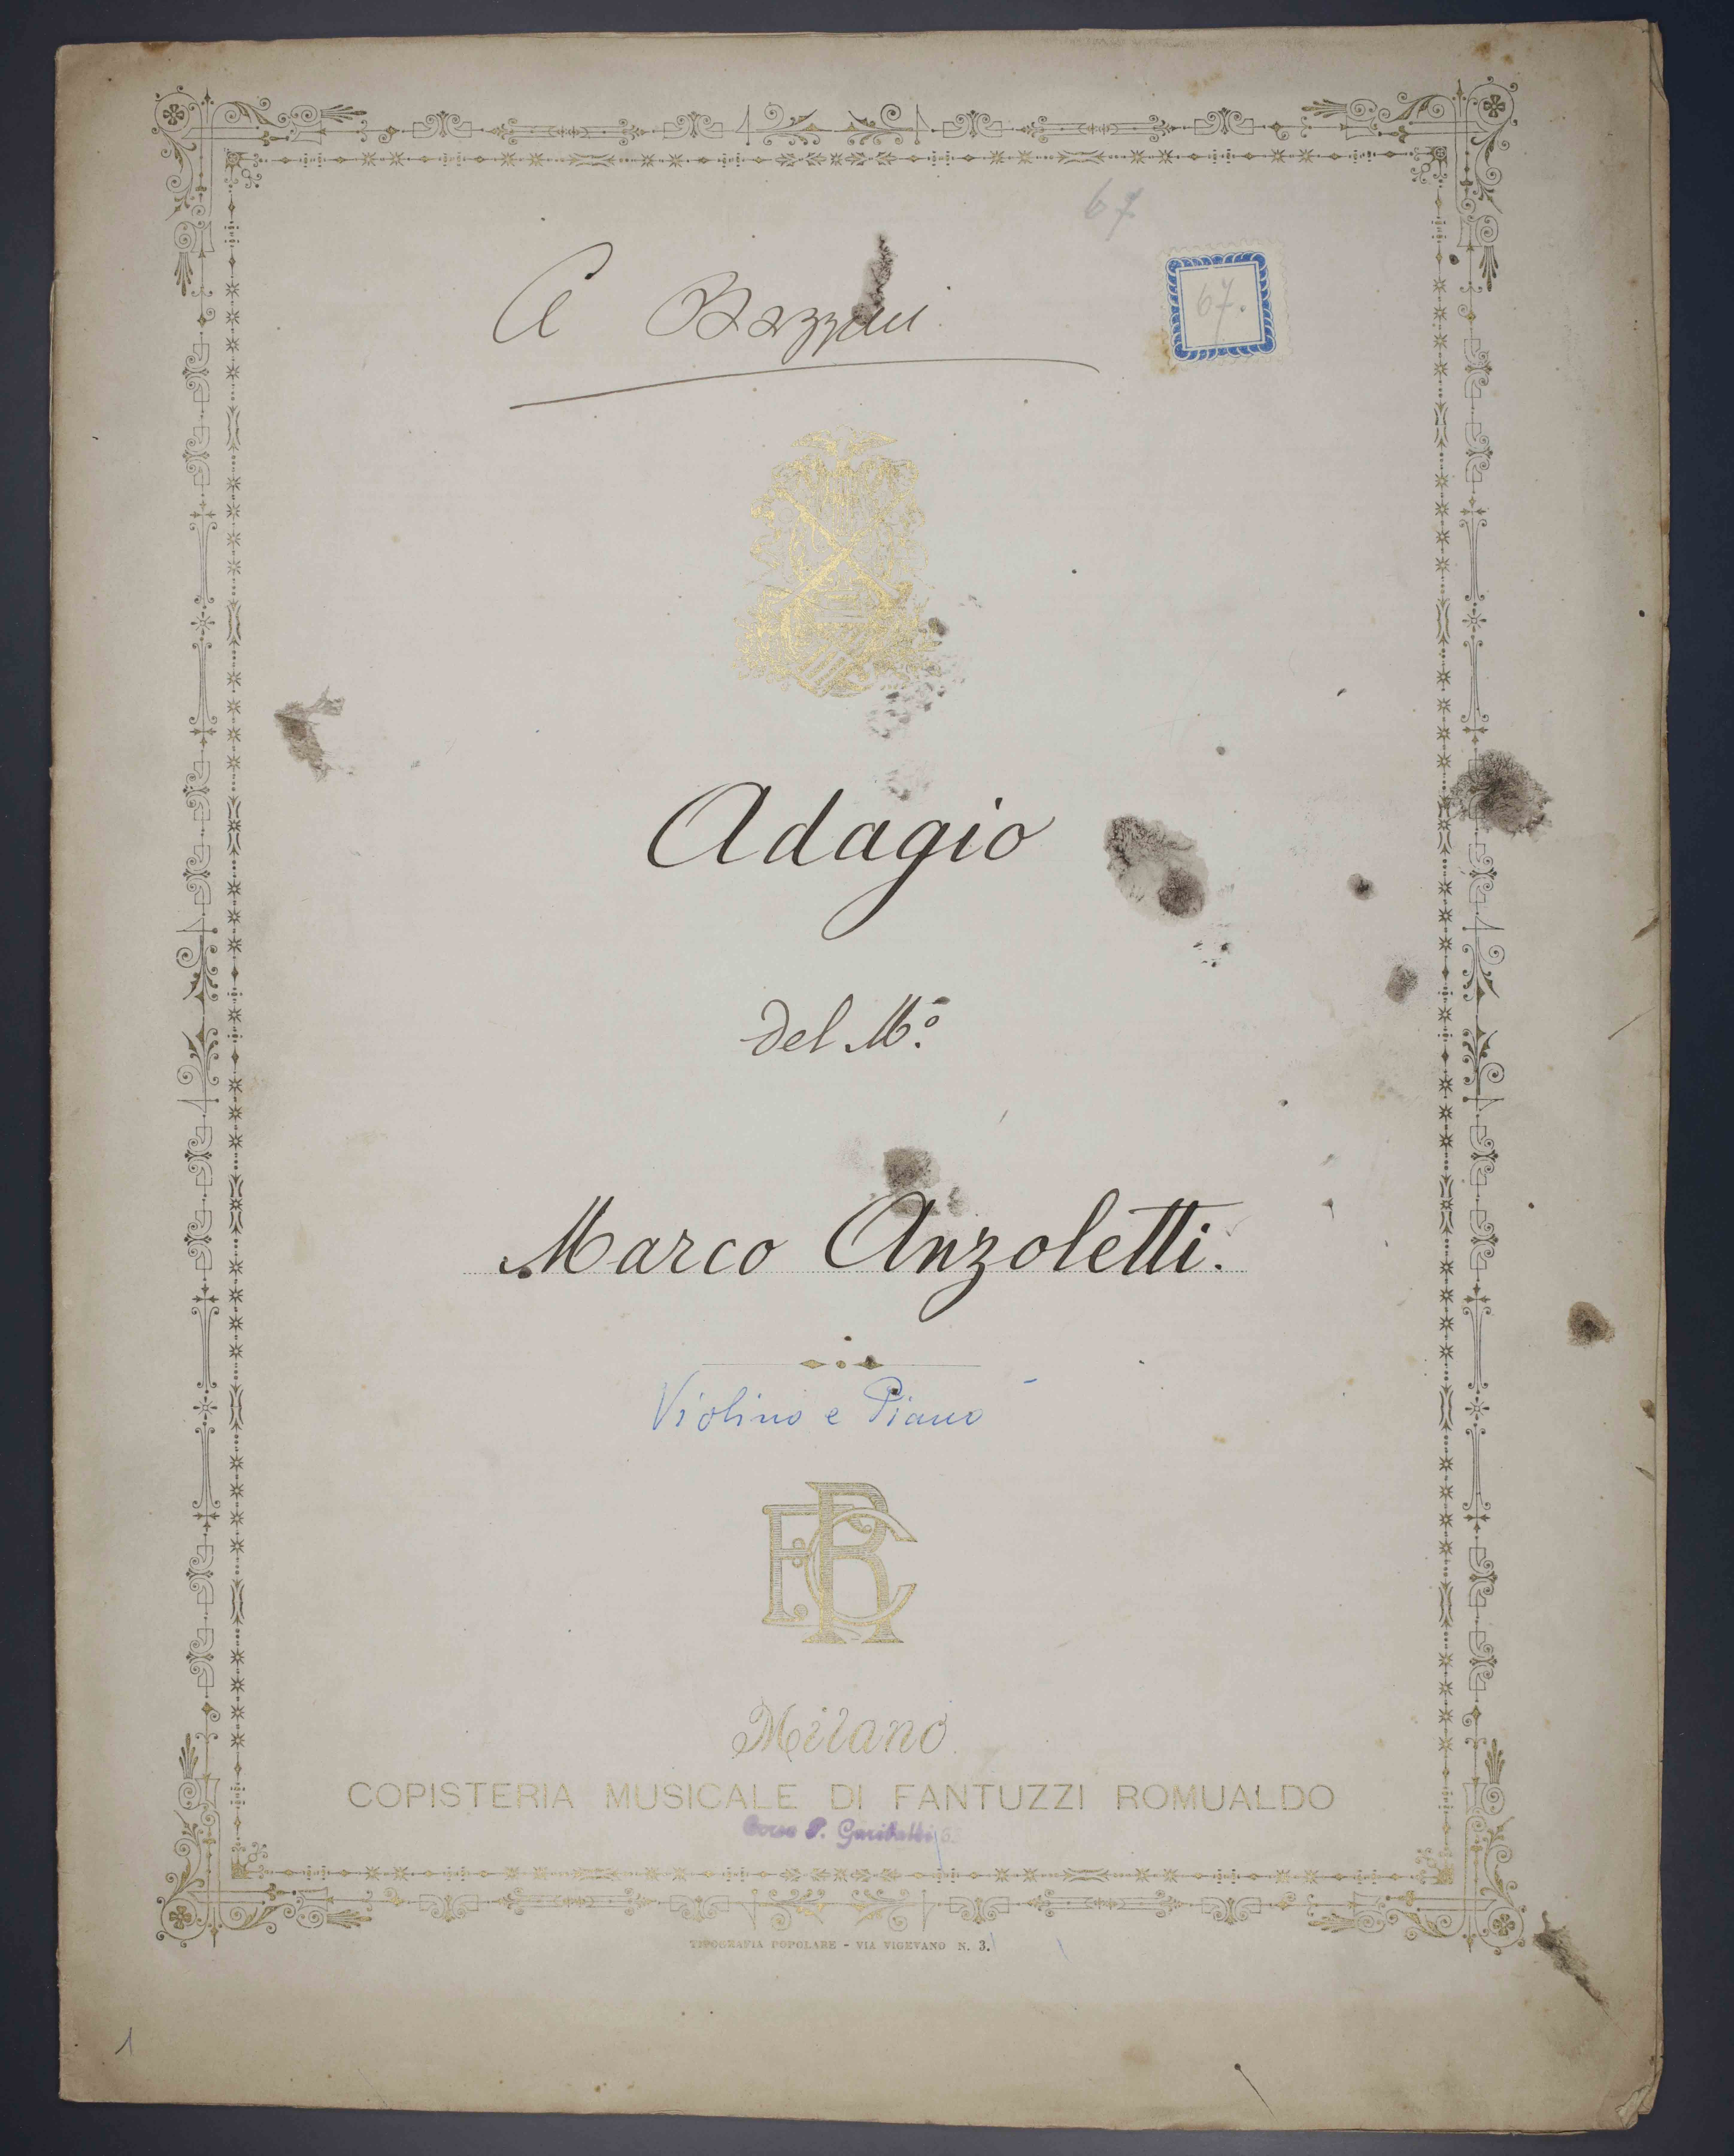 67
A Bazzini
67.
Adagio
del Mo.
Marco Anzoletti.
Violino e Piano
FRC
Milano
COPISTERIA MUSICALE DI FANTUZZI ROMUALDO
Corso P. Garibaldi
TIPOGRAFIA POPOLARE - VIA VIGEVANO N. 3.
1